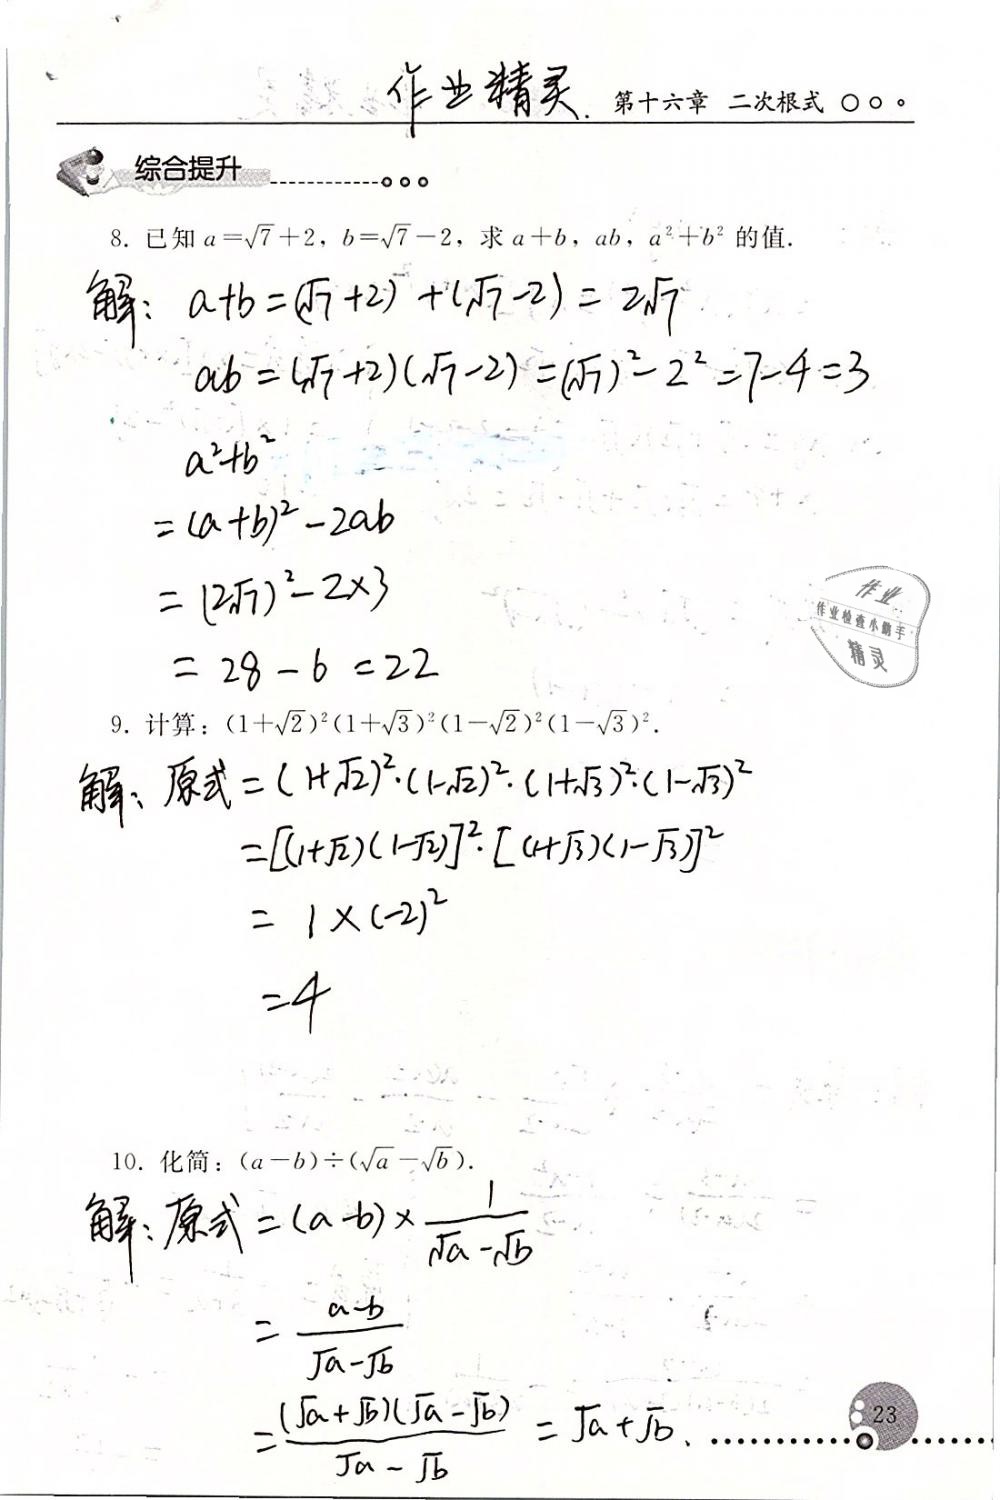 作业精灵
第十六章 二次根式
综合提升
8. 已知 a=√7+2, b=√7-2, 求 a+b, ab, a²+b² 的值.
解: a+b=(√7+2)+(√7-2)=2√7
ab=(√7+2)(√7-2)=(√7)²-2²=7-4=3
a²+b²
=(a+b)²-2ab
=(2√7)²-2×3
=28-6=22
作业
作业检查小助手
精灵
9. 计算: (1+√2)²(1+√3)²(1-√2)²(1-√3)².
解: 原式=(1+√2)²·(1-√2)²·(1+√3)²·(1-√3)²
=[(1+√2)(1-√2)]²·[(1+√3)(1-√3)]²
=1×(-2)²
=4
10. 化简: (a-b)÷(√a-√b).
解: 原式=(a-b)×1/(√a-√b)
=(a-b)/(√a-√b)
=(√a+√b)(√a-√b)/(√a-√b)=√a+√b.
23